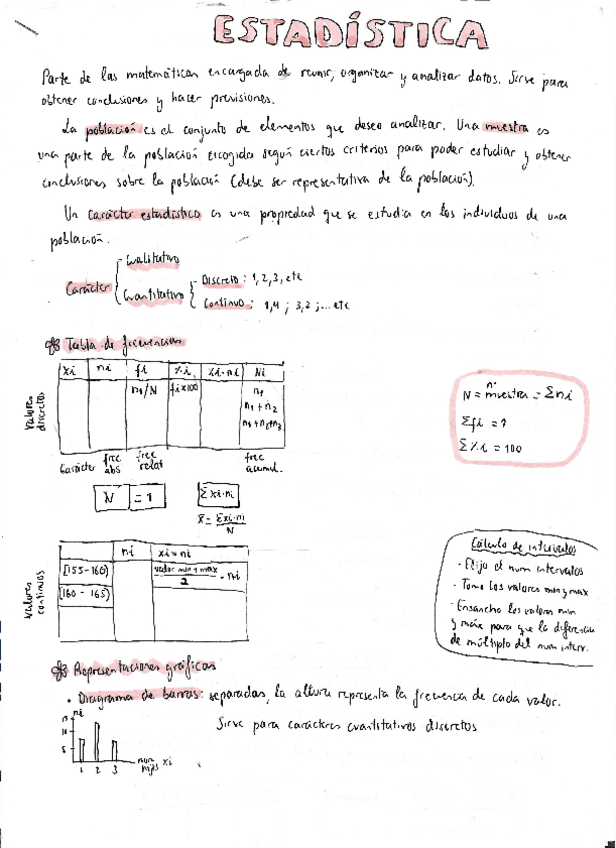 ESTADÍSTICA
Parte de las matemáticas encargada de reunir, organizar y analizar datos. Sirve para
obtener conclusiones y hacer previsiones.
La población es el conjunto de elementos que deseo analizar. Una muestra es
una parte de la población escogida según ciertos criterios para poder estudiar y obtener
conclusiones sobre la población (debe ser representativa de la población).
Un carácter estadístico es una propiedad que se estudia en los individuos de una
población.
Carácter
Cualitativo
Cuantitativo
Discreto: 1, 2, 3, etc
Continuo: 1,4 ; 3,2 ; ... etc
Tabla de frecuencias
Valores discretos
xi ni fi %i xi·ni Ni
n1/N fix100 n1
n1+n2
n1+n2+n3
Carácter frec abs frec relat frec acumul.
N = 1 Σxi·ni
x̄ = Σxi·ni / N
N = nº muestra = Σni
Σfi = 1
Σ%i = 100
Valores continuos
ni xi·ni
[155-160) valor min+max / 2 · ni
[160-165)
Cálculo de intervalos
- Elijo el num intervalos
- Tomo los valores min y max
- Ensancho los valores min
y máx para que la diferencia
de múltiplo del num interv.
Representaciones gráficas
• Diagrama de barras: separadas, la altura representa la frecuencia de cada valor.
Sirve para caracteres cuantitativos discretos
ni
15
10
5
1 2 3 xi